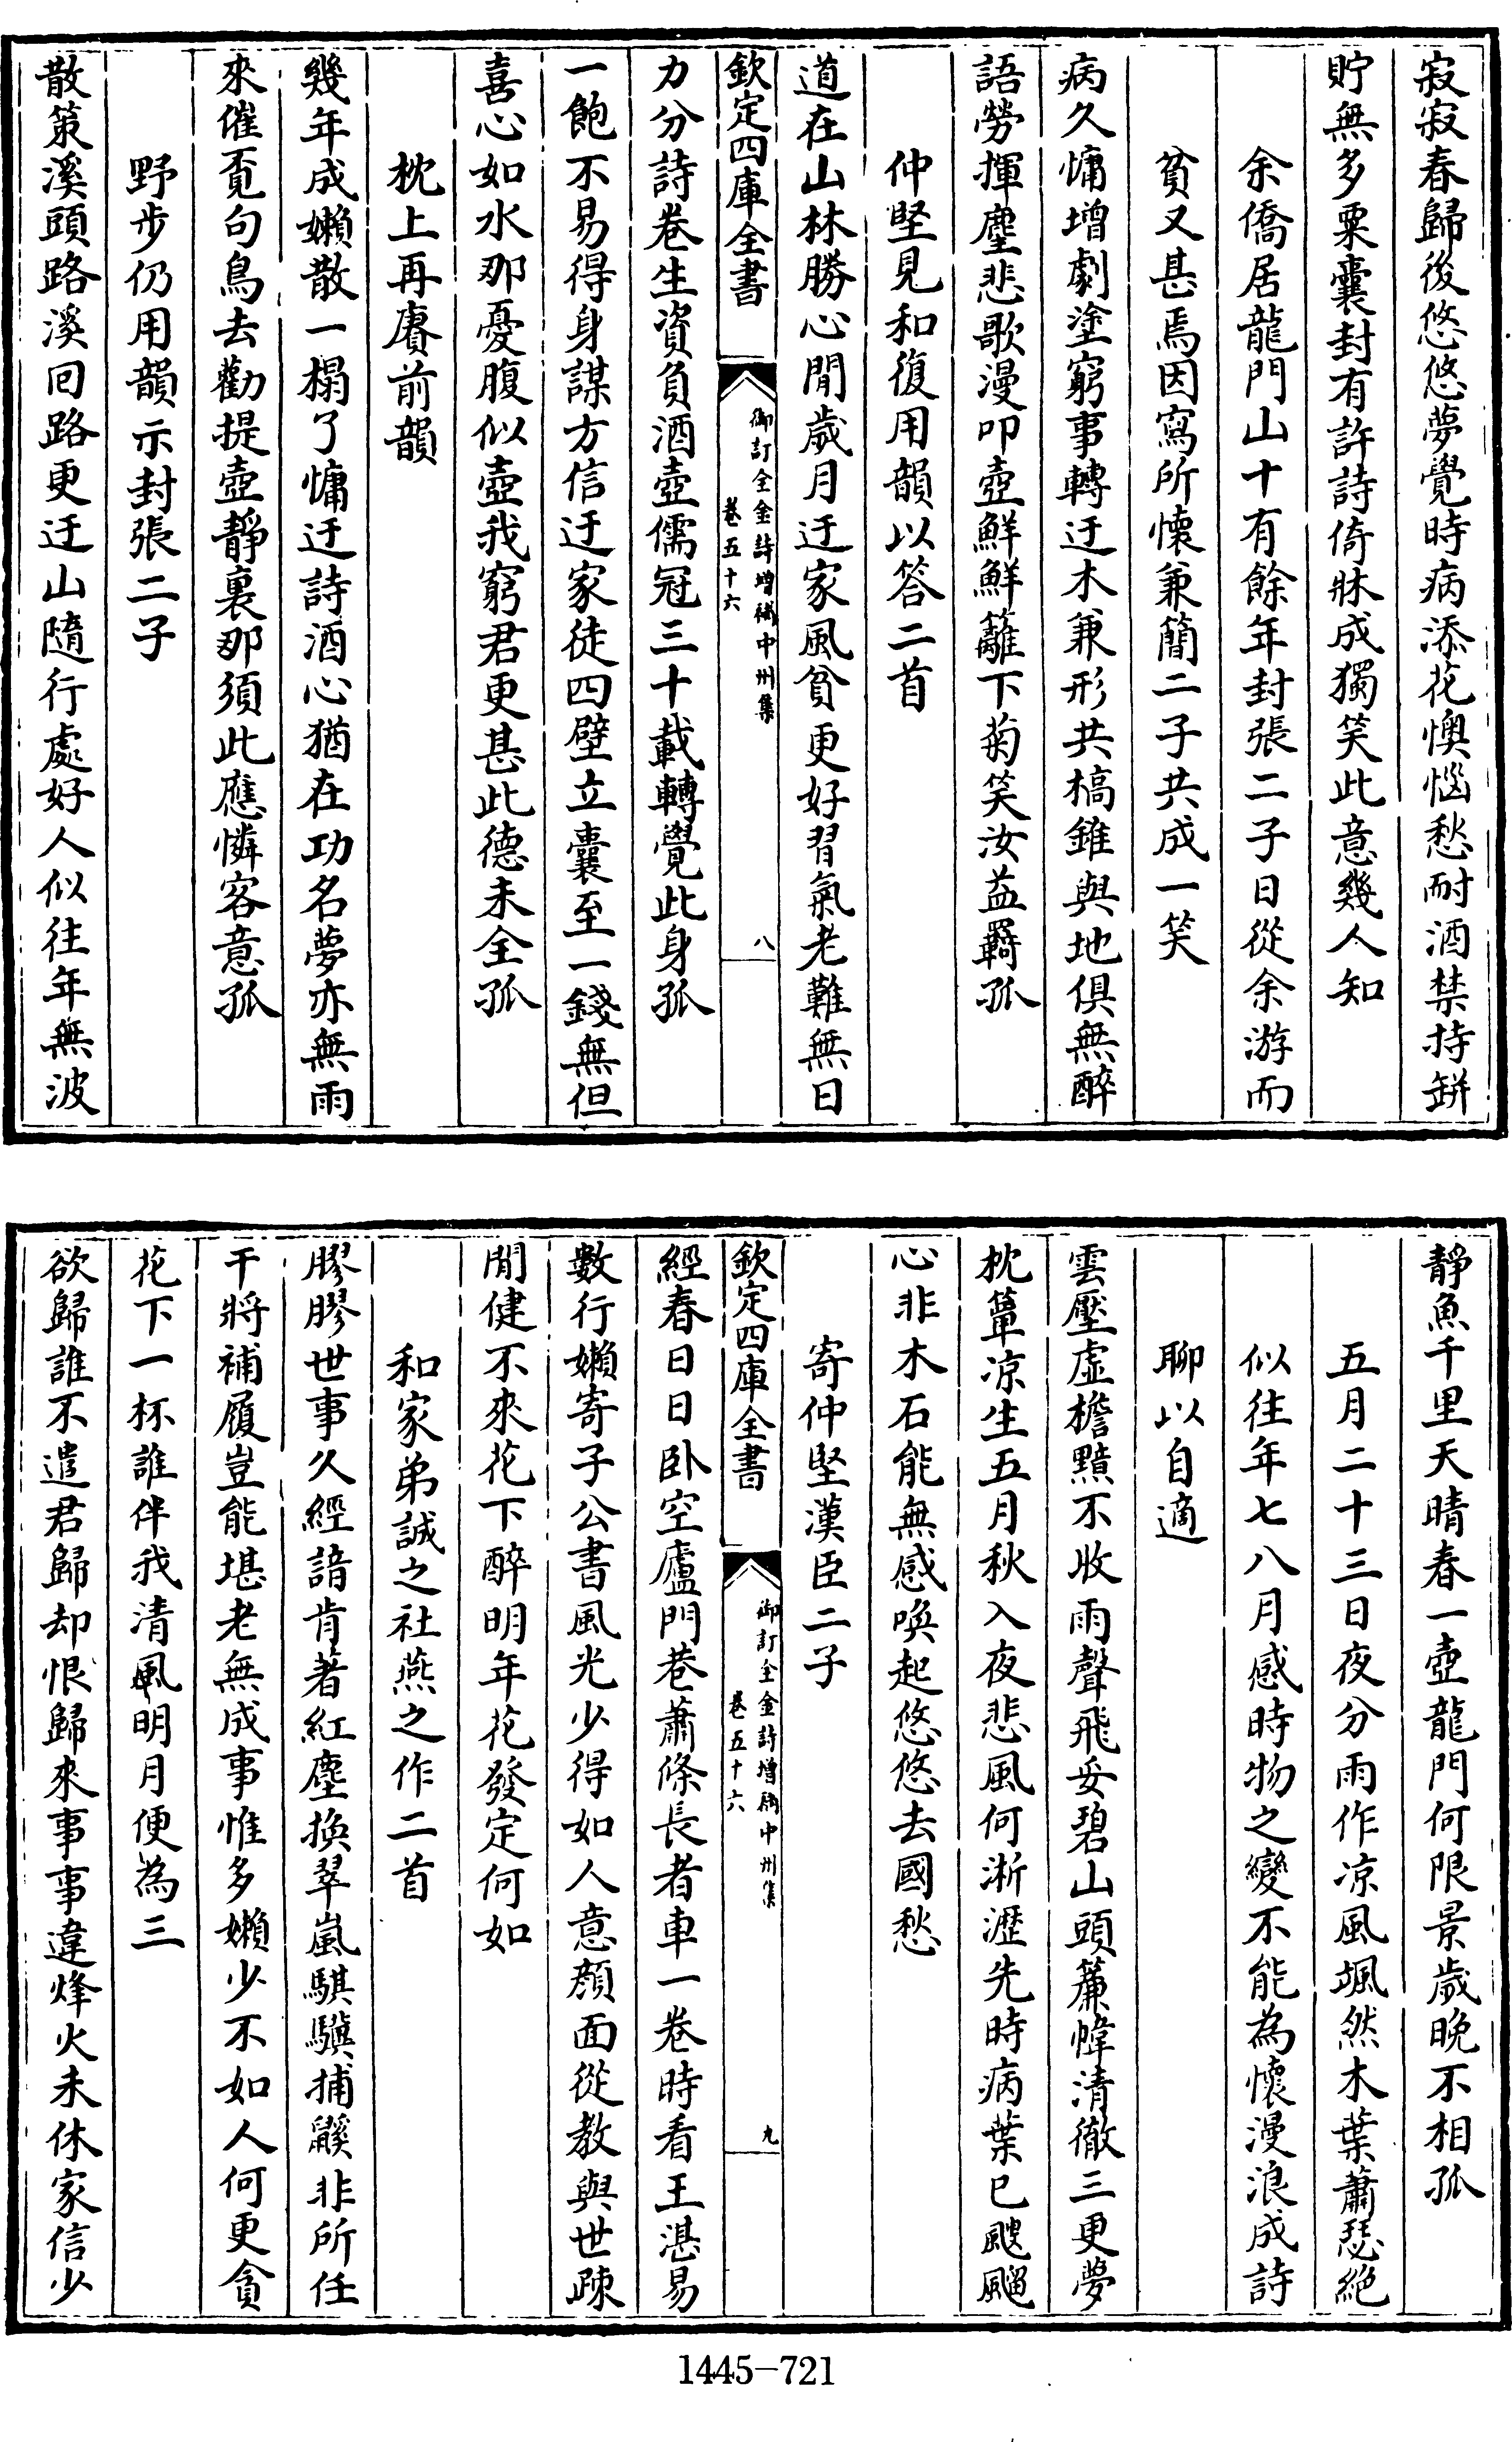 寂寂春歸後悠悠夢覺時病添花懊惱愁耐酒禁持缾
貯無多粟囊封有許詩倚牀成獨笑此意幾人知
余僑居龍門山十有餘年封張二子日從余游而
貧又甚焉因寫所懷兼簡二子共成一笑
病久慵增劇塗窮事轉迂木兼形共槁錐與地俱無醉
語勞揮麈悲歌漫叩壺鮮鮮籬下菊笑汝益羇孤
仲堅見和復用韻以答二首
道在山林勝心閒歲月迂家風貧更好習氣老難無日
欽定四庫全書
御訂全金詩增補中州集
卷五十六
八
力分詩卷生資負酒壺儒冠三十載轉覺此身孤
一飽不易得身謀方信迂家徒四壁立囊至一錢無但
喜心如水那憂腹似壺我窮君更甚此德未全孤
枕上再賡前韻
幾年成嬾散一榻了慵迂詩酒心猶在功名夢亦無雨
來催覓句鳥去勸提壺靜裏那須此應憐客意孤
野步仍用韻示封張二子
散策溪頭路溪回路更迂山隨行處好人似往年無波
靜魚千里天晴春一壺龍門何限景歲晚不相孤
五月二十三日夜分雨作凉風颯然木葉蕭瑟絕
似往年七八月感時物之變不能為懷漫浪成詩
聊以自適
雲壓虛檐黯不收雨聲飛妥碧山頭簾幃清徹三更夢
枕簟凉生五月秋入夜悲風何淅瀝先時病葉已颼飀
心非木石能無感喚起悠悠去國愁
寄仲堅漢臣二子
欽定四庫全書
御訂全金詩增補中州集
卷五十六
九
經春日日卧空廬門巷蕭條長者車一卷時看王湛易
數行嬾寄子公書風光少得如人意顏面從教與世疎
閒健不來花下醉明年花發定何如
和家弟誠之社燕之作二首
膠膠世事久經諳肯著紅塵換翠嵐騏驥捕鼷非所任
干將補履豈能堪老無成事惟多嬾少不如人何更貪
花下一杯誰伴我清風明月便為三
欲歸誰不遣君歸却恨歸來事事違烽火未休家信少
1445-721